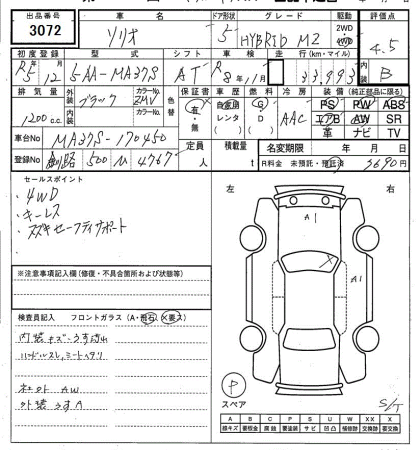 出品番号 車名 ドア形状 グレード 駆動 評価点
3072 ソリオ 5 HYBRID MZ 2WD 4WD 4.5
初度登録 型式 シフト 車検 走行(km・マイル) 内装
R5 12 5AA-MA37S AT R8年11月 33,993 B
排気量 外装 カラーNo. 色替 保証書 車歴 燃料 冷房 装備(純正部品に限る)
1200cc ブラック ZMV 有・無 自家用 レンタ G D AAC PS PW ABS
内装 カラーNo. エアB AW SR
革 ナビ TV
車台No MA37S-170450
定員 人 積載量 t 名変期限 年 月 日
登録No 釧路 500 ム 4767
R料金 未預託・預託済 円
セールスポイント
・4WD
・キーレス
・スズキセーフティサポート
左 右
A1
A1
※注意事項記入欄(修復・不具合箇所および状態等)
検査員記入 フロントガラス(A・飛石・X要ス)
内装キズ・うす汚れ
ハンドルスレ、シートヘタリ
社外AW
外装うすA
P
スペア
S/T
A B C P S U W X XX X
線キズ 要板金 腐食 要塗装 サビ 凹凸 補修跡 交換跡 要交換